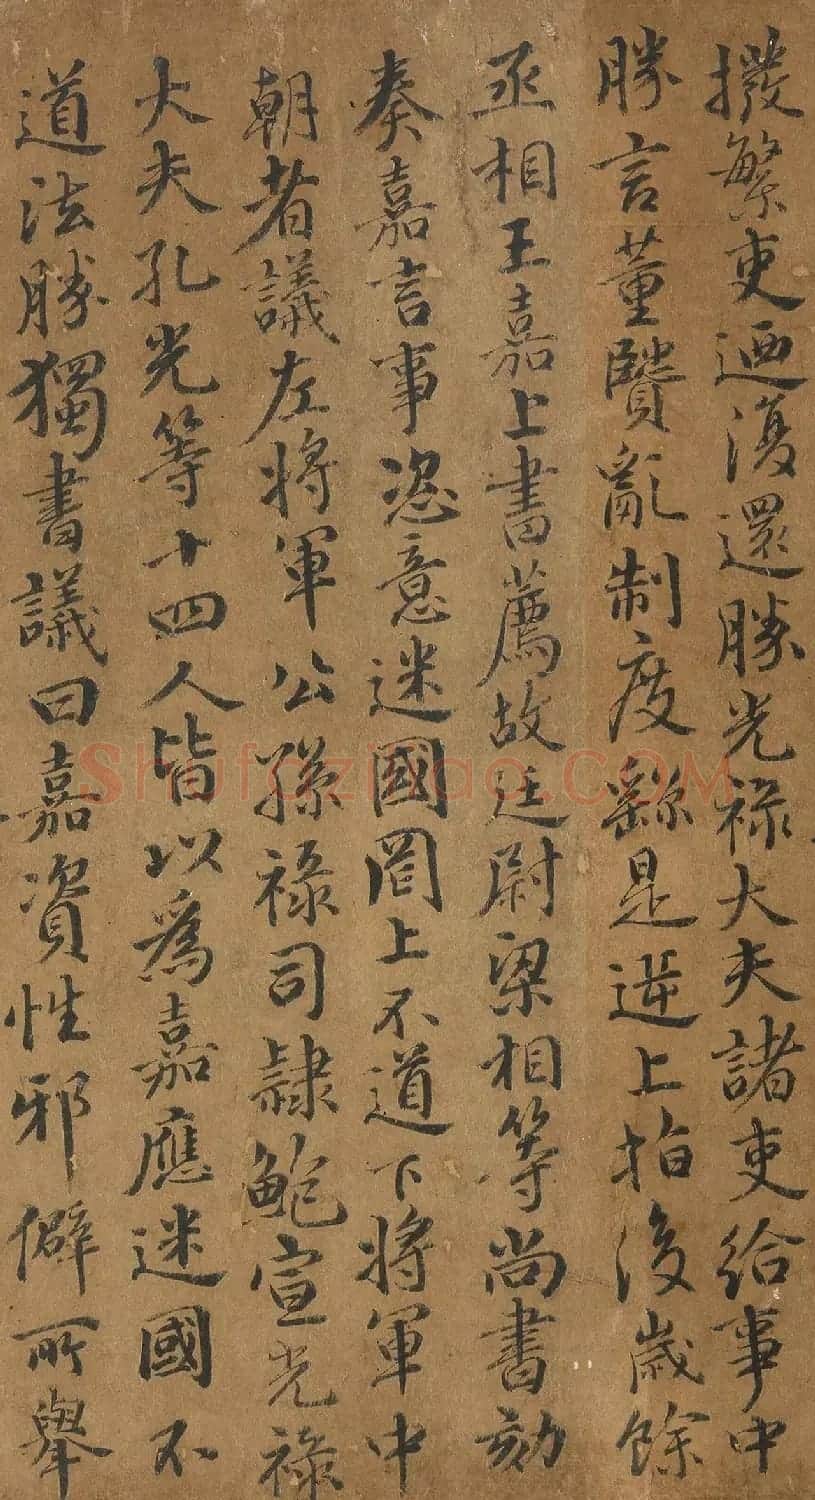 撥繁吏迺復還勝光祿大夫諸吏給事中
勝言董賢亂制度繇是逆上指後歲餘
丞相王嘉上書薦故廷尉梁相等尚書劾
奏嘉言事恣意迷國罔上不道下將軍中
朝者議左將軍公孫祿司隸鮑宣光祿
大夫孔光等十四人皆以為嘉應迷國不
道法勝獨書議曰嘉資性邪僻所舉
shufaziliao.COM